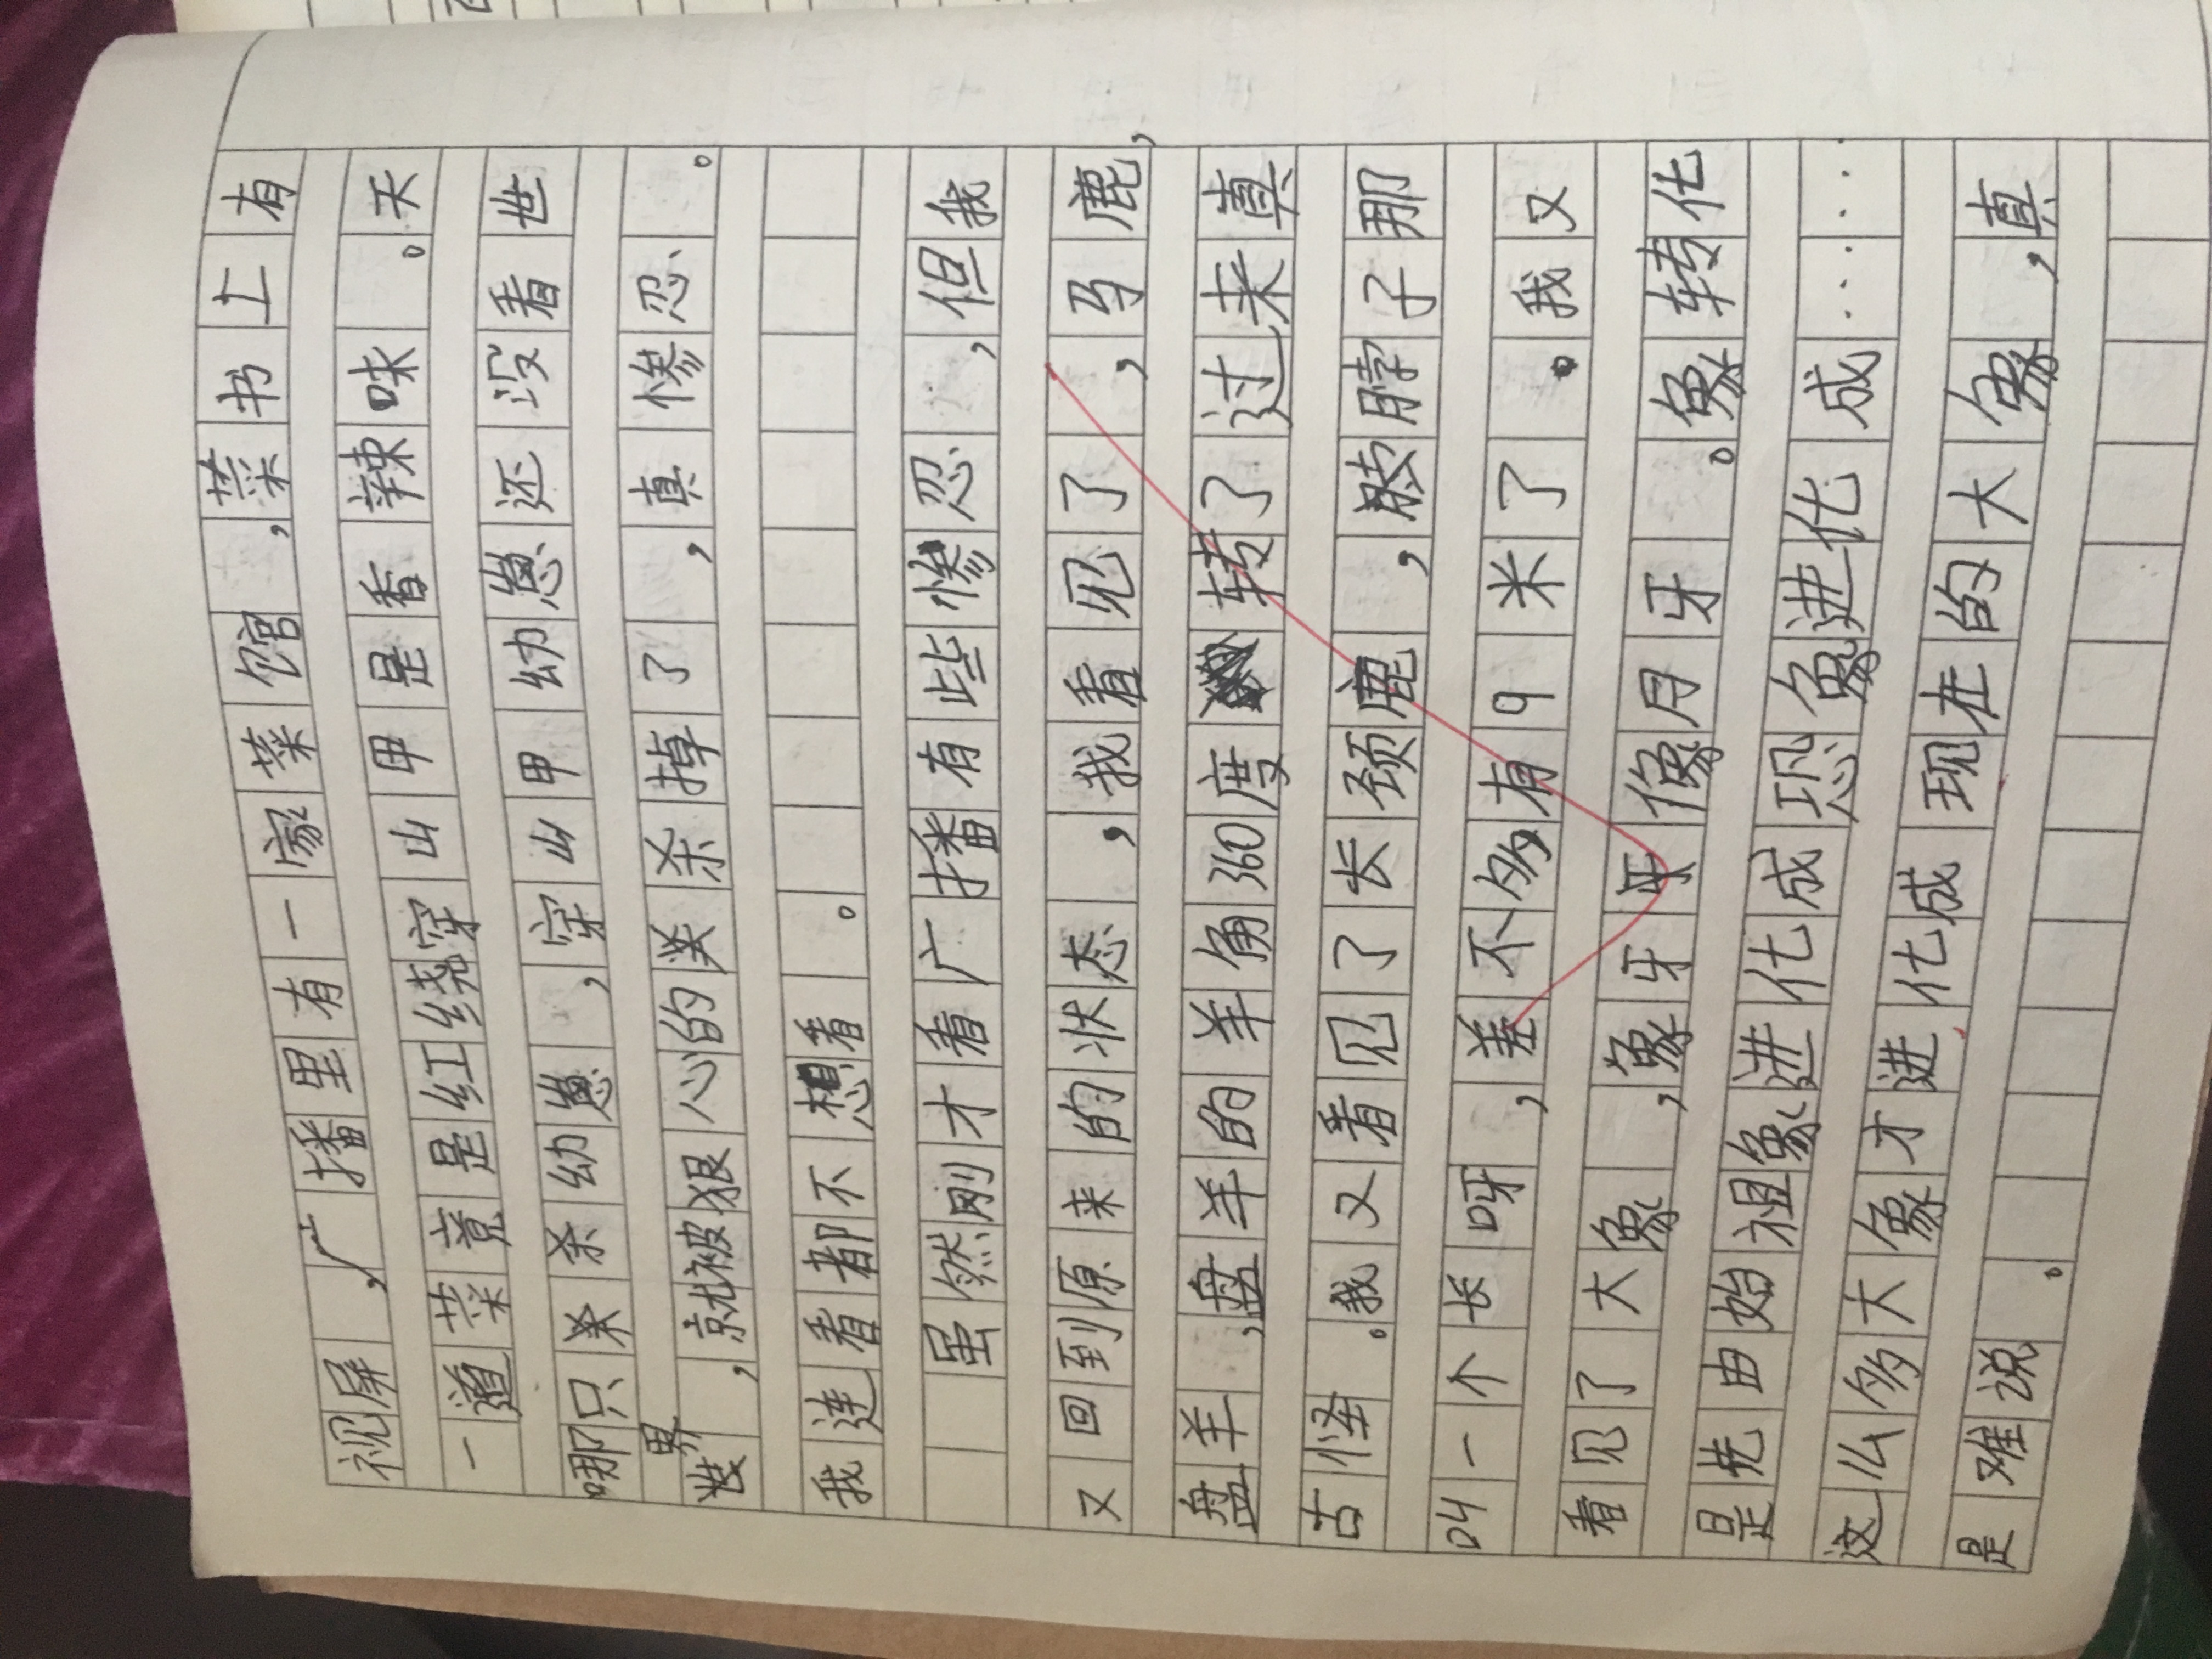 视屏,广播里有一家菜馆,菜书上有
一道菜竟是红绕穿山甲是香辣味。天
哪只杀杀幼崽,穿山甲幼崽还没看世
世界,就被狠心的杀杀掉了,真惨忍。
我连看都不想看。
虽然刚才看广播有些惨忍,但我
又回到原来的状态,我看见了,马鹿,
盘羊,盘羊的羊角360度转了过来真
古怪。我又看见了长颈鹿,脖子那
叫一个长呀,差不多有9米了。我又
看见了大象,象牙像月牙。象转化
是先由始祖象进化成恐象进化成……
这么多大象才进化成现在的大象,真
是难说。